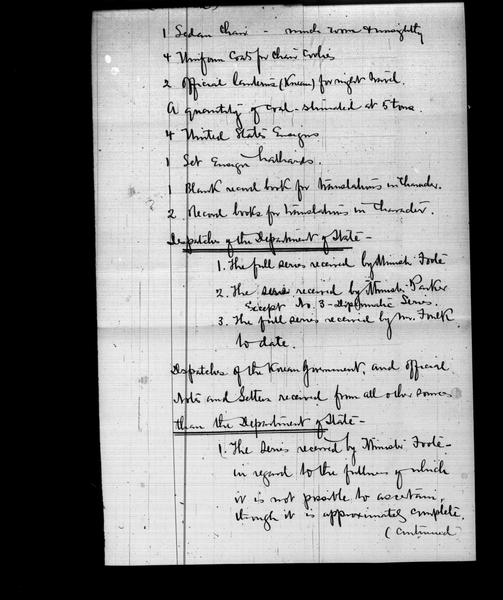 1 Sedan Chair - much worn & unsightly
4 Uniform Coats for Chair Coolies
2 Official lanterns (Korean) for night travel.
A quantity of coal - estimated at 5 tons
4 United States Ensigns
1 Set Ensign halliards.
1 Blank record book for translations in Character.
2 Record books for translations in Character.
Despatches of the Department of State -
1. The full series received by Minister Foote
2. The series received by Minister Parker
Except No. 3 - diplomatic Series.
3. The full series received by Mr. Foulk
to date.
Despatches of the Korean Government and official
Notes and Letters received from all other sources
than the Department of State -
1. The series received by Minister Foote -
in regard to the fullness of which
it is not possible to ascertain,
though it is approximately complete.
(continued